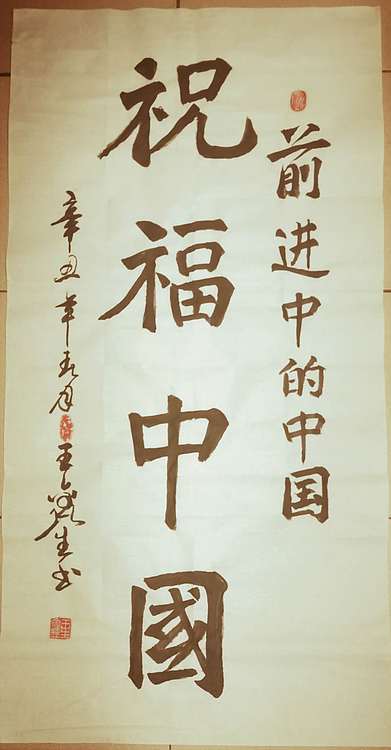 前进中的中国
祝福中國
辛丑年五月王 生书